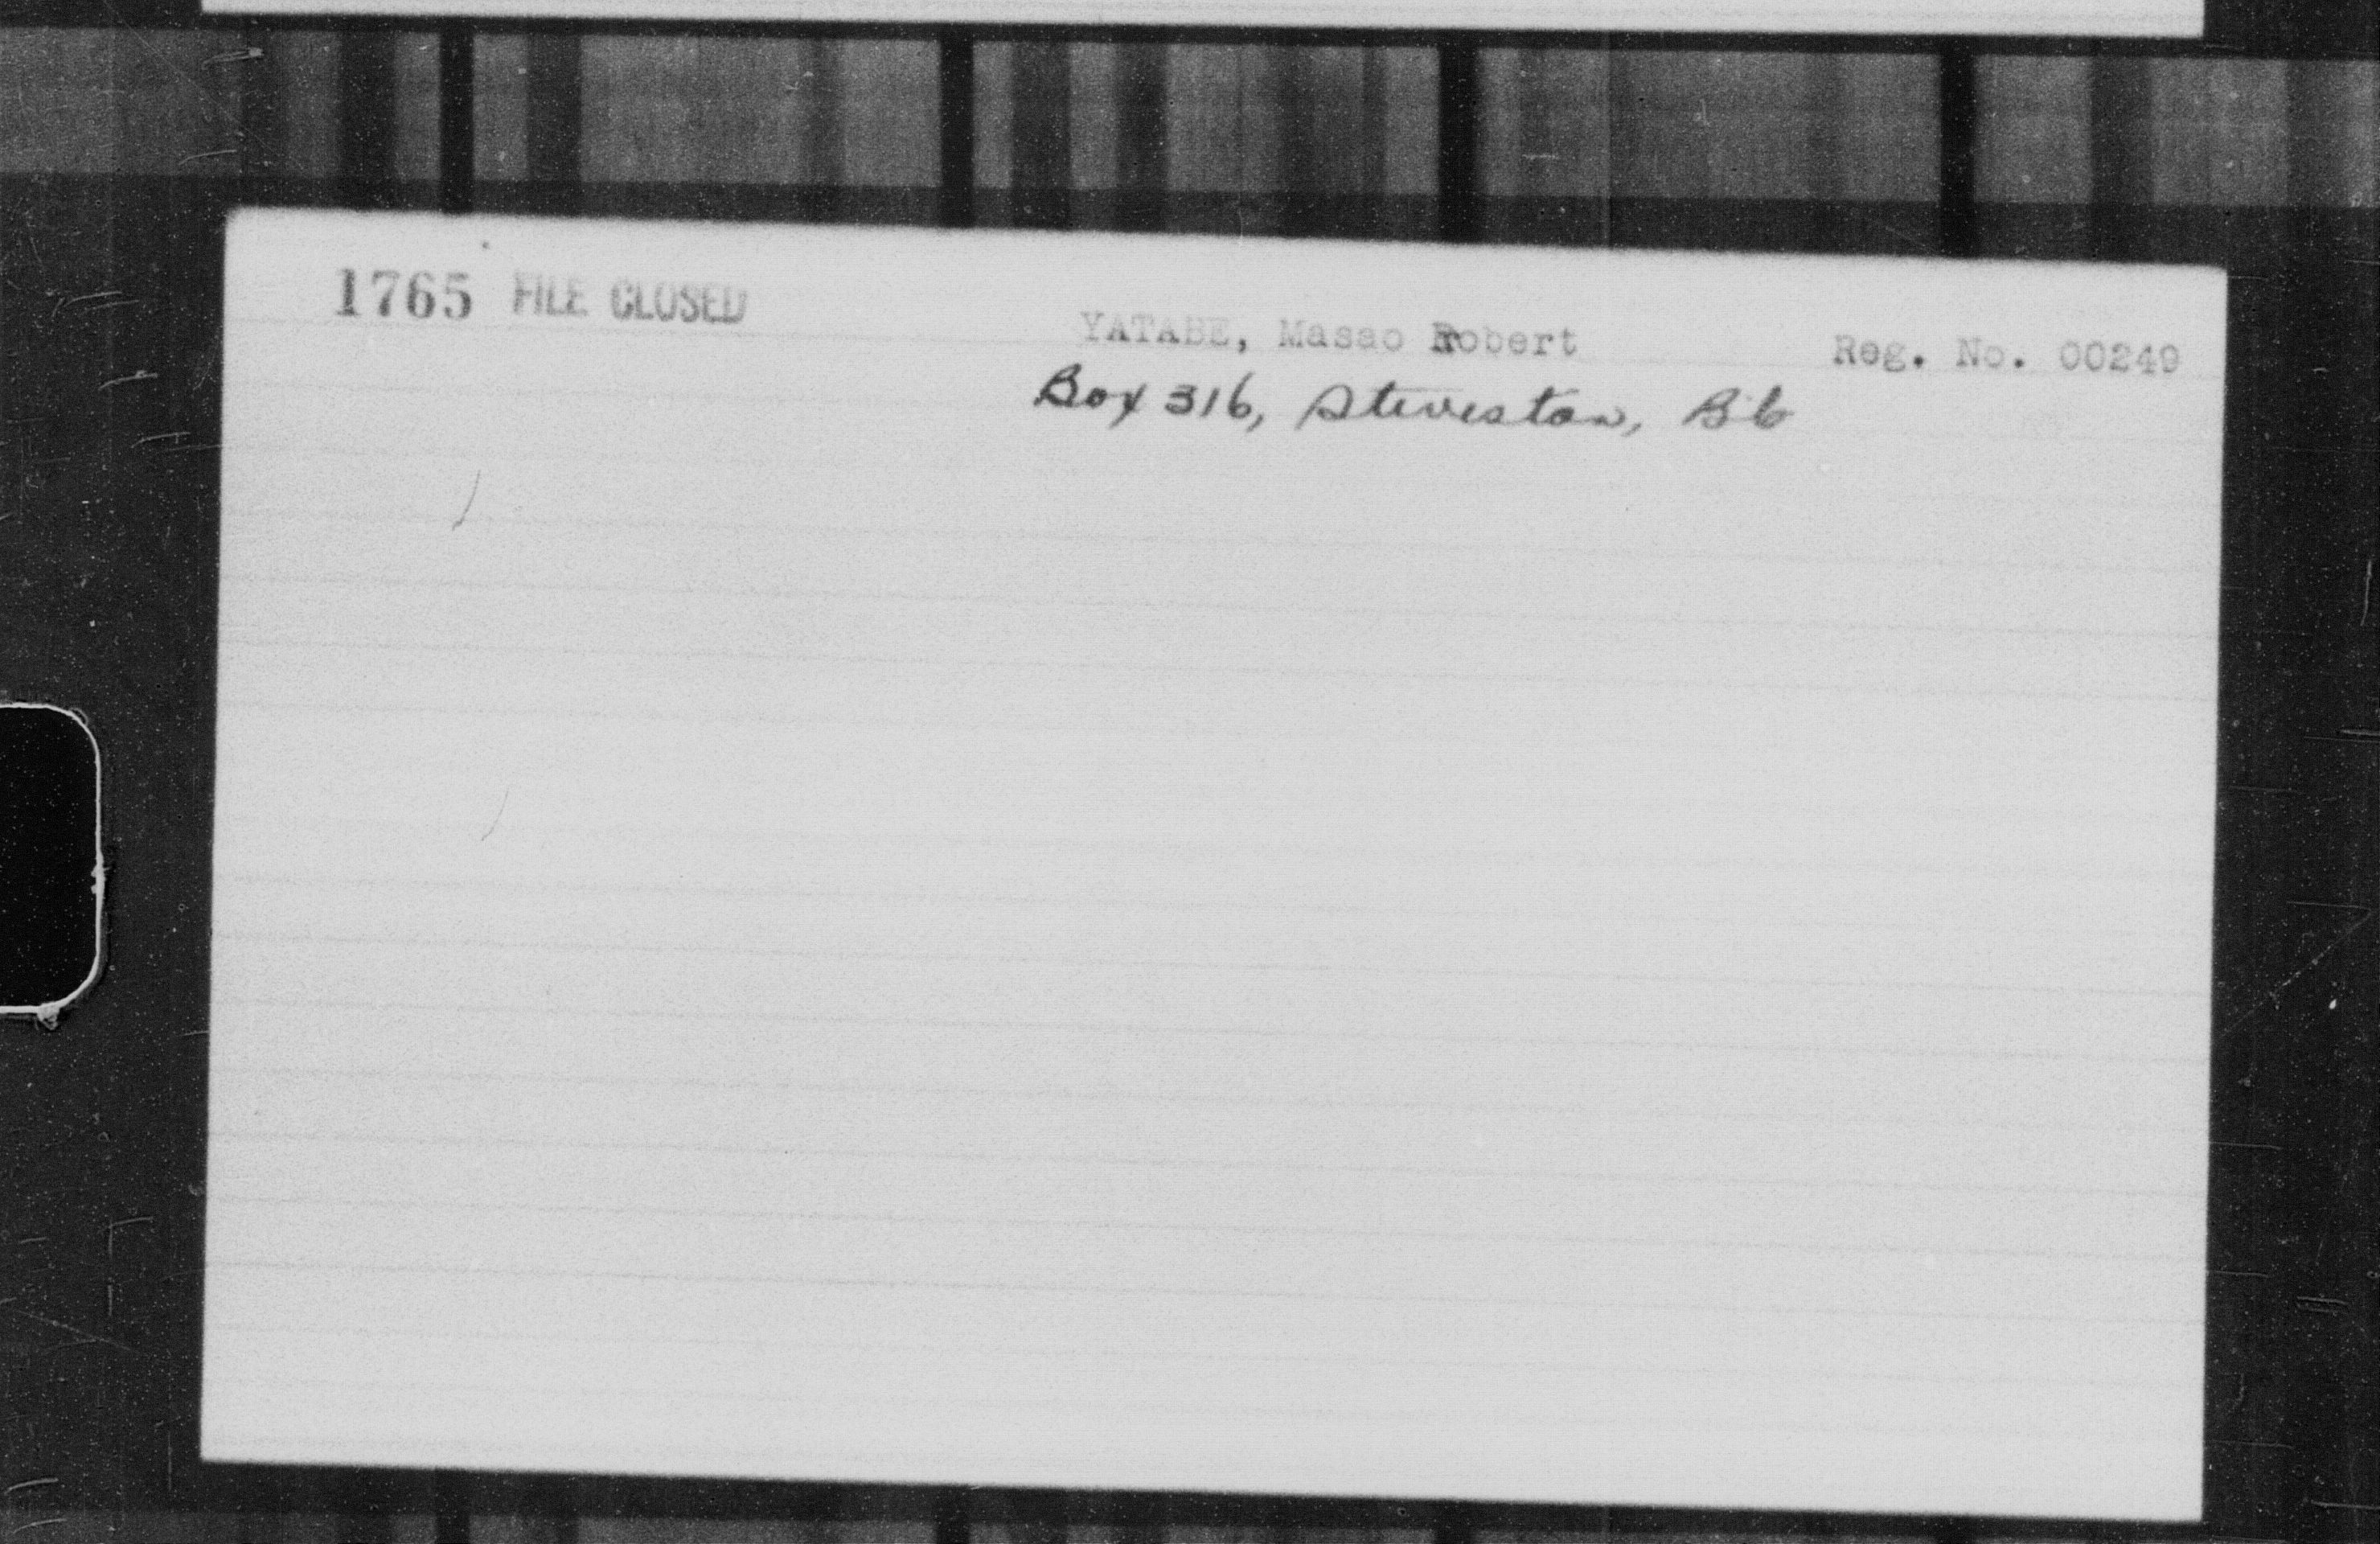 1765 FILE CLOSED
YATABE, Masao Robert Reg. No. 00249
Box 316, Steveston, BC